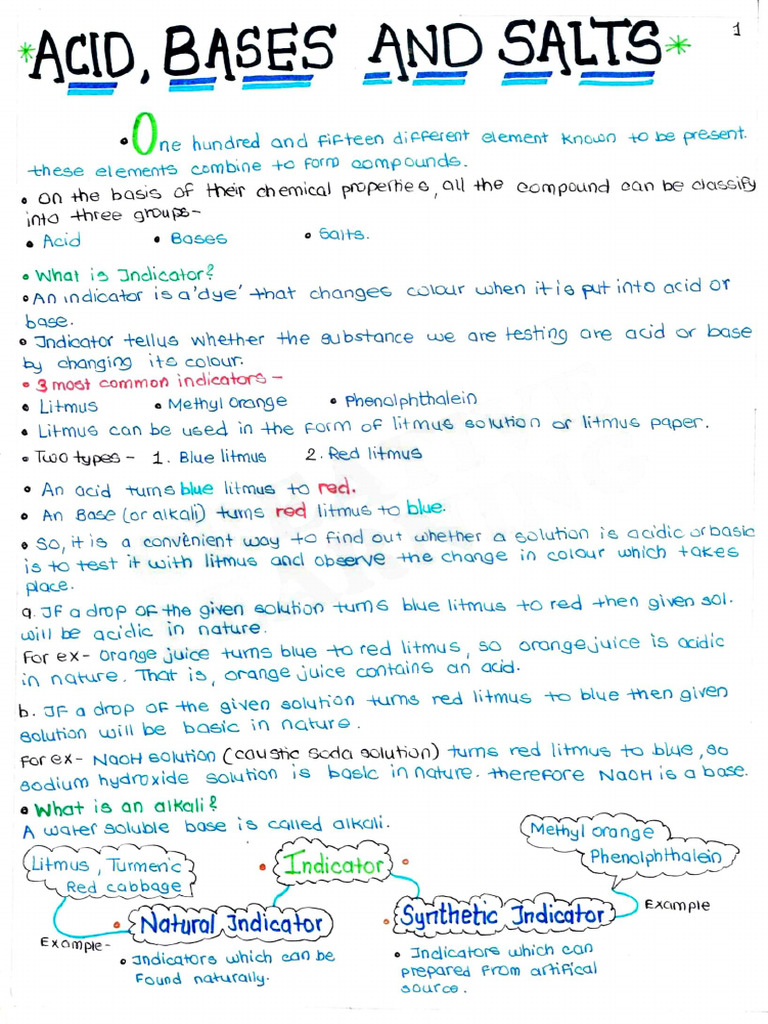 1
*ACID, BASES AND SALTS*
• One hundred and fifteen different element known to be present.
these elements combine to form compounds.
• On the basis of their chemical properties, all the compound can be classify
into three groups-
• Acid • Bases • Salts.
• What is Indicator?
• An indicator is a 'dye' that changes colour when it is put into acid or
base.
• Indicator tellus whether the substance we are testing are acid or base
by changing its colour.
• 3 most common indicators -
• Litmus • Methyl orange • Phenolphthalein
• Litmus can be used in the form of litmus solution or litmus paper.
• Two types - 1. Blue litmus 2. Red litmus
• An acid turns blue litmus to red.
• An Base (or alkali) turns red litmus to blue.
• So, it is a convenient way to find out whether a solution is acidic or basic
is to test it with litmus and observe the change in colour which takes
place.
a. If a drop of the given solution turns blue litmus to red then given sol.
will be acidic in nature.
For ex- orange juice turns blue to red litmus, so orange juice is acidic
in nature. That is, orange juice contains an acid.
b. If a drop of the given solution turns red litmus to blue then given
solution will be basic in nature.
for ex- NaOH solution (caustic soda solution) turns red litmus to blue, so
sodium hydroxide solution is basic in nature. therefore NaOH is a base.
• What is an alkali?
A water soluble base is called alkali.
Litmus, Turmeric
Red cabbage
• Indicator •
Methyl orange
Phenolphthalein
• Natural Indicator
• Synthetic Indicator
Example
Example-
• Indicators which can be
found naturally.
• Indicators which can
prepared from artifical
source.